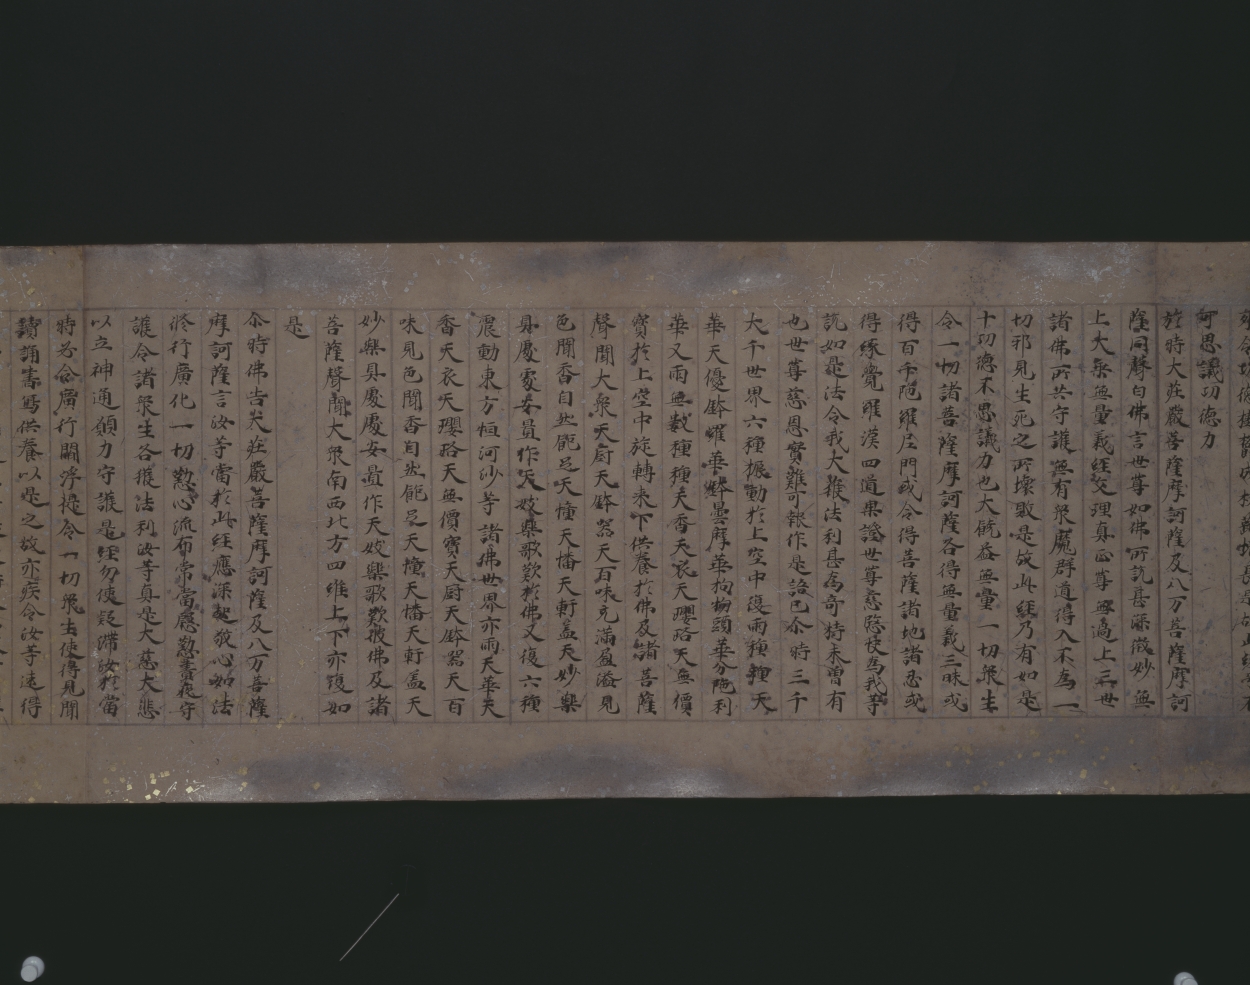 可思議功德力
於時大莊嚴菩薩摩訶薩及八万菩薩摩訶
薩同聲白佛言世尊如佛所說甚深微妙無
上大乘無量義經文理真正尊無過上三世
諸佛所共守護無有眾魔群道得入不為一
切邪見生死之所壞敗是故此經乃有如是
十功德不思議力也大饒益無量一切眾生
令一切諸菩薩摩訶薩各得無量義三昧或
得百千陀羅尼門或令得菩薩諸地諸忍或
得緣覺羅漢四道果證世尊慈愍快為我等
說如是法令我大獲法利甚為奇特未曾有
也世尊慈恩實難可報作是語已尒時三千
大千世界六種振動於上空中復雨種種天
華天優鉢羅華鉢曇摩華拘物頭華分陀利
華又雨無數種種天香天衣天瓔珞天無價
寶於上空中旋轉来下供養於佛及諸菩薩
聲聞大眾天厨天鉢器天百味充滿盈溢見
色聞香自然飽足天幢天幡天軒盖天妙樂
具處處安置作天妓樂歌歎於佛又復六種
震動東方恒河沙等諸佛世界亦雨天華天
香天衣天瓔珞天無價寶天厨天鉢器天百
味見色聞香自然飽足天幢天幡天軒盖天
妙樂具處處安置作天妓樂歌歎彼佛及諸
菩薩聲聞大眾南西北方四維上下亦復如
是
尒時佛告大莊嚴菩薩摩訶薩及八万菩薩
摩訶薩言汝等當於此經應深起敬心如法
脩行廣化一切懃心流布常當慇懃晝夜守
護令諸眾生各獲法利汝等真是大慈大悲
以立神通願力守護是經勿使疑滯汝於當
時必令廣行閻浮提令一切眾生使得見聞
讀誦書寫供養以是之故亦疾令汝等速得